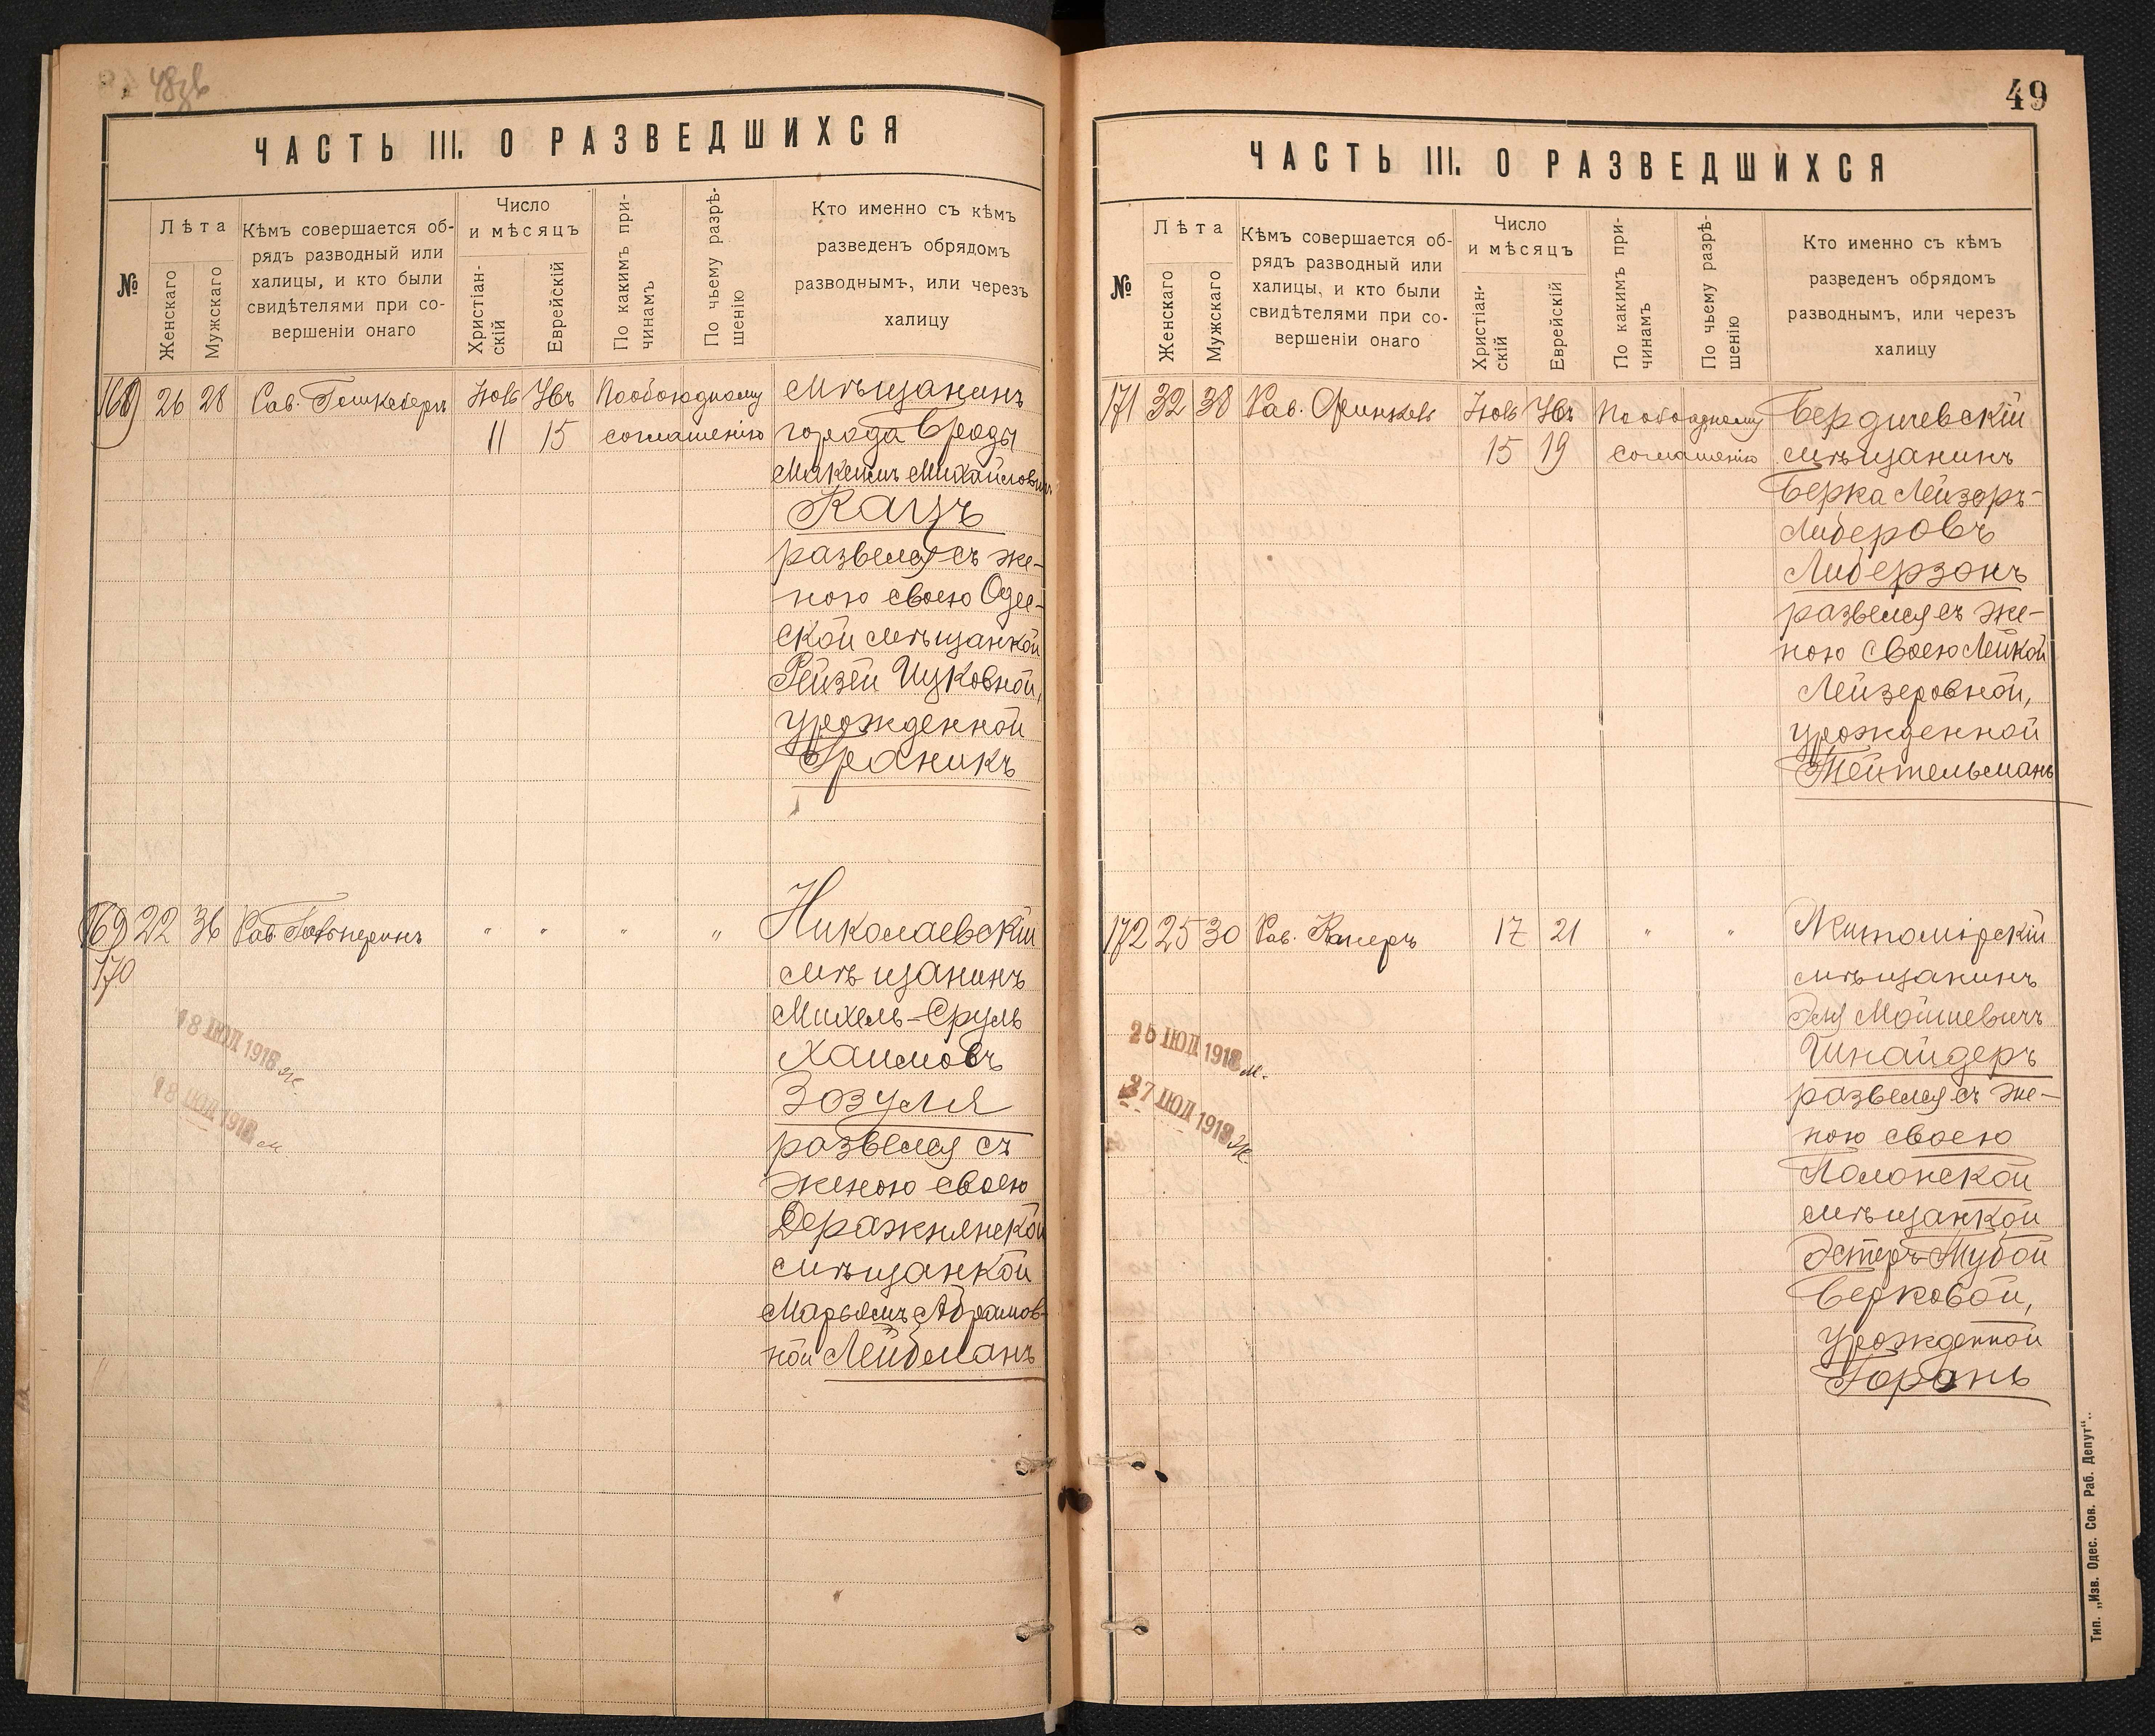 48
ЧАСТЬ III. О РАЗВЕДШИХСЯ
№
Лѣта
Женскаго
Мужскаго
Кѣмъ совершается об-
рядъ разводный или
халицы, и кто были
свидѣтелями при со-
вершеніи онаго
Число
и мѣсяцъ
Христіан-
скій
Еврейскій
По какимъ при-
чинамъ
По чьему разрѣ-
шенію
Кто именно съ кѣмъ
разведенъ обрядомъ
разводнымъ, или черезъ
халицу
168 26 28 Рав. Нояб Хѣв По обоюдному мѣщанинъ
11 15 соглашенію города Броды
Михайловичъ
Кацъ
развелся съ же-
ною своею Одес-
ской мѣщанкой
Рейзей Ицковной,
урожденной
Граникъ
169 22 36 Рав. Гальперинъ " " " " Николаевскій
170 мѣщанинъ
Михель-Сруль
Хаимовъ
18 ІЮЛ 1918 ж.
Зозуля
18 ІЮЛ 1918 м.
развелся съ
женою своею
Деражнянской
мѣщанкой
Марьямъ Абрамов-
ной Лейбманъ
49
ЧАСТЬ III. О РАЗВЕДШИХСЯ
№
Лѣта
Женскаго
Мужскаго
Кѣмъ совершается об-
рядъ разводный или
халицы, и кто были
свидѣтелями при со-
вершеніи онаго
Число
и мѣсяцъ
Христіан-
скій
Еврейскій
По какимъ при-
чинамъ
По чьему разрѣ-
шенію
Кто именно съ кѣмъ
разведенъ обрядомъ
разводнымъ, или черезъ
халицу
171 32 38 Рав. Нояб Хѣв По обоюдному Бердичевскій
15 19 соглашенію мѣщанинъ
Берка Лейзоръ-
Либеровъ
Либерзонъ
развелся съ же-
ною своею Лейкой
Лейзеровной,
урожденной
Тейтельманъ
172 25 30 Рав. 17 21 " " Житомірскій
мѣщанинъ
Эля Мошиевичъ
25 ІЮЛ 1918 м.
Шнайдеръ
27 ІЮЛ 1918 ж.
развелся съ же-
ною своею
Полонской
мѣщанкой
Эстеръ-Мубой
Берковой,
урожденной
Горбань
Тип. „Изв. Одес. Сов. Раб. Депут".